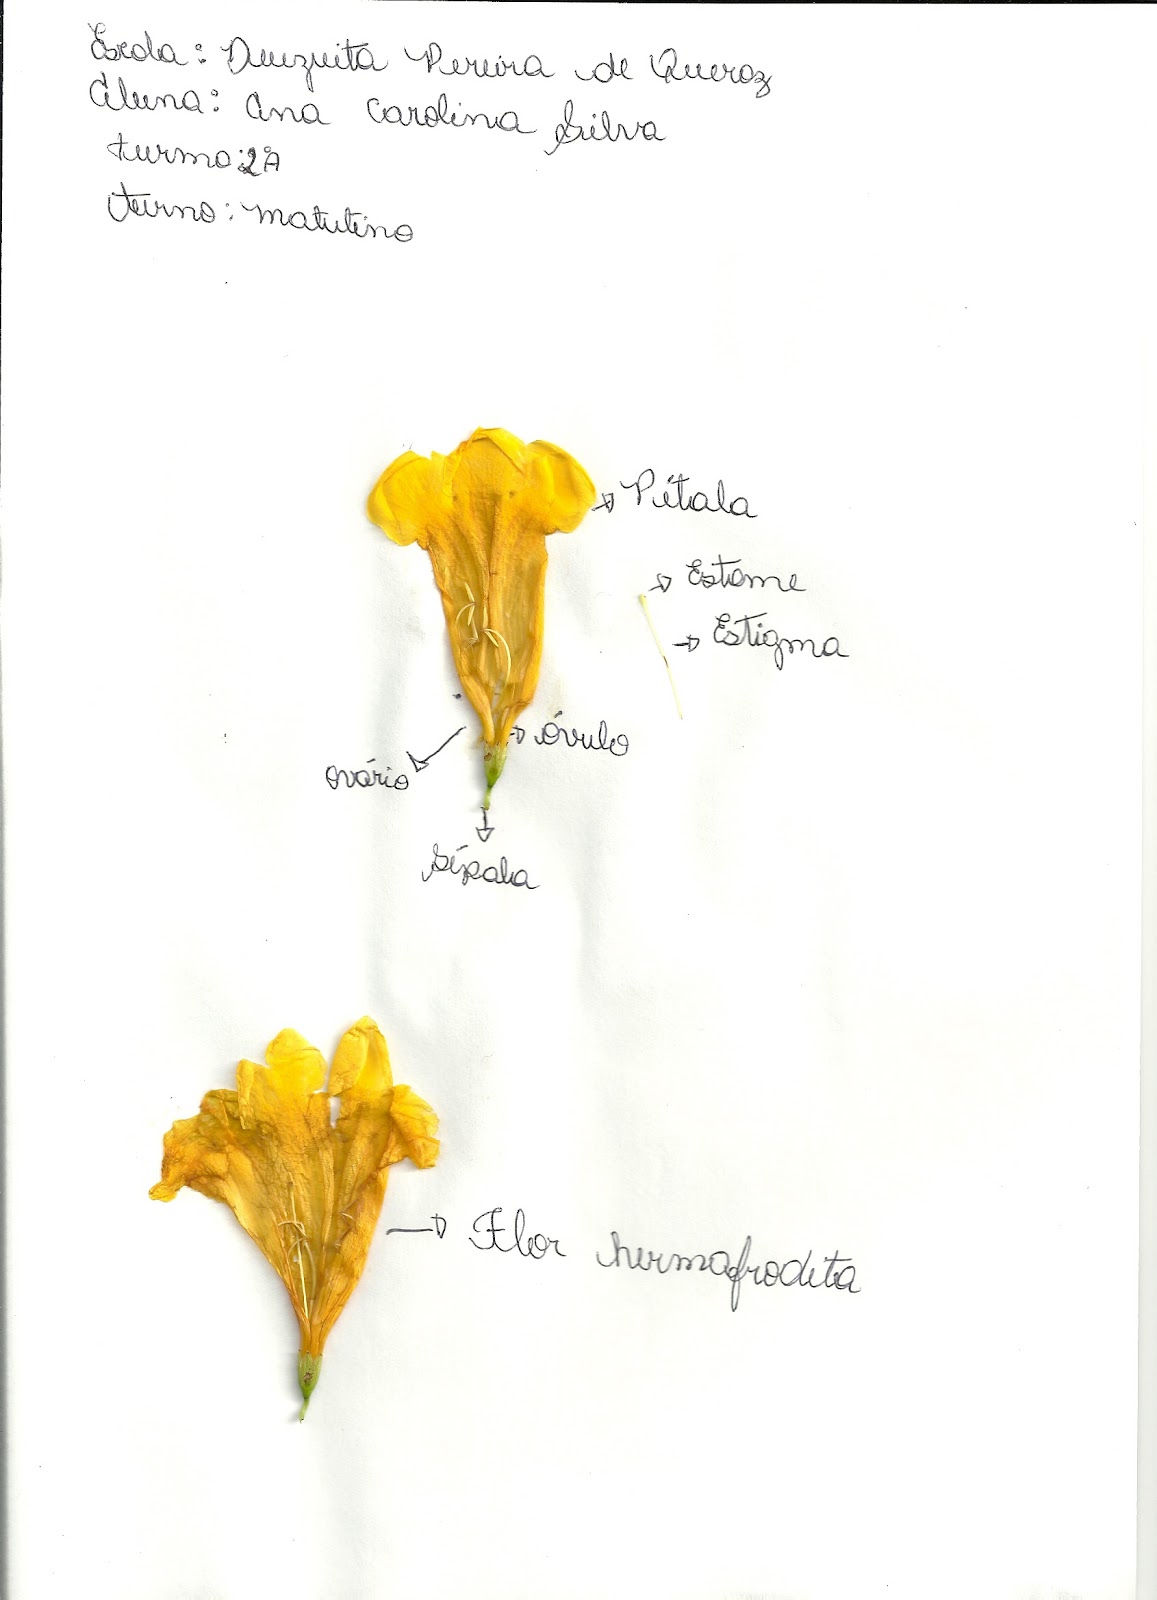 Escola: Deuzuita Pereira de Queroz
Aluna: Ana Carolina Silva
turma: 2ºA
Turno: Matutino
Pétala
Estame
Estigma
óvulo
ovário
Sépala
Flor hermafrodita